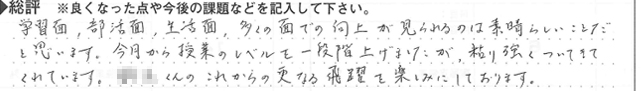 総評 ※良くなった点や今後の課題などを記入して下さい。
学習面，部活面，生活面，多くの面での向上が見られるのは素晴らしいことだ
と思います。今月から授業のレベルを一段階上げましたが，粘り強くついてきて
くれています。くんのこれからの更なる飛躍を楽しみにしております。